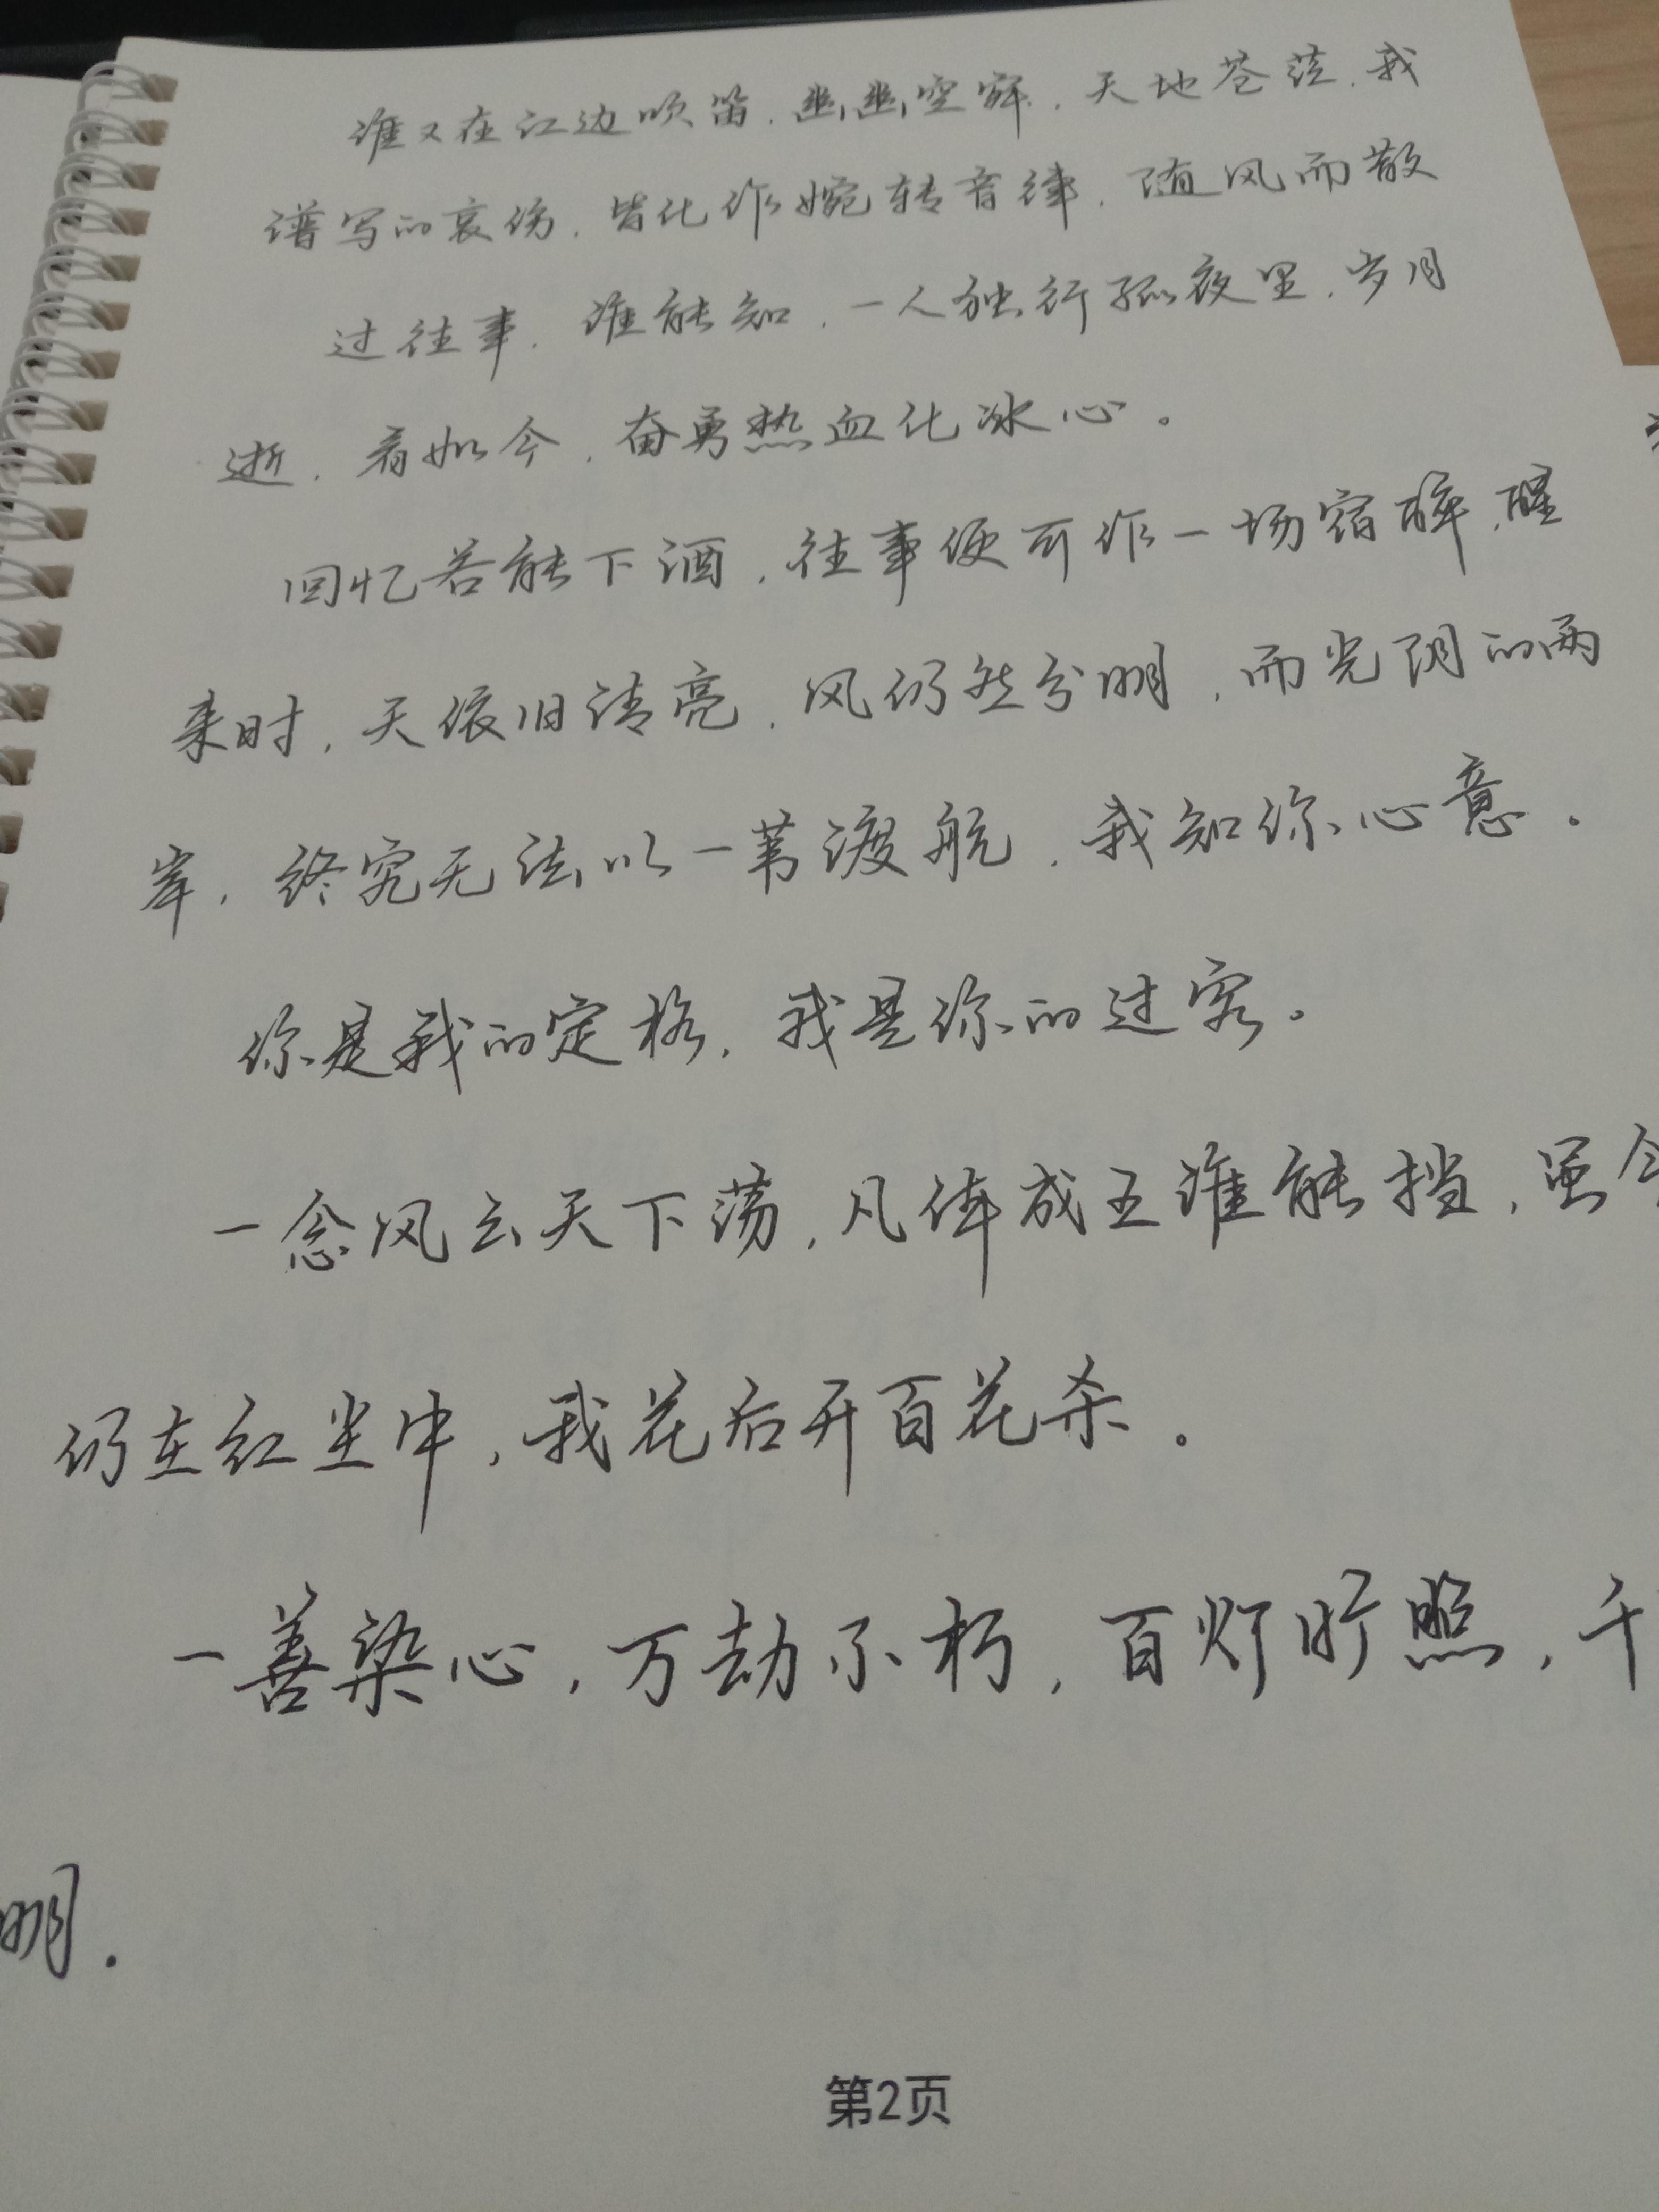 谁又在江边吹笛，幽幽空寂，天地苍茫，我
谱写的哀伤，皆化作婉转音律，随风而散
过往事，谁能知，一人独行孤夜里，岁月
逝，看如今，奋勇热血化冰心。
回忆若能下酒，往事便可作一场宿醉，醒
来时，天依旧清亮，风仍然分明，而光阴的两
岸，终究无法以一苇渡航，我知你心意。
你是我的定格，我是你的过客。
一念风云天下荡，凡体成王谁能挡，虽今
仍在红尘中，我花后开百花杀。
一善染心，万劫不朽，百灯旷照，千
明.
第2页